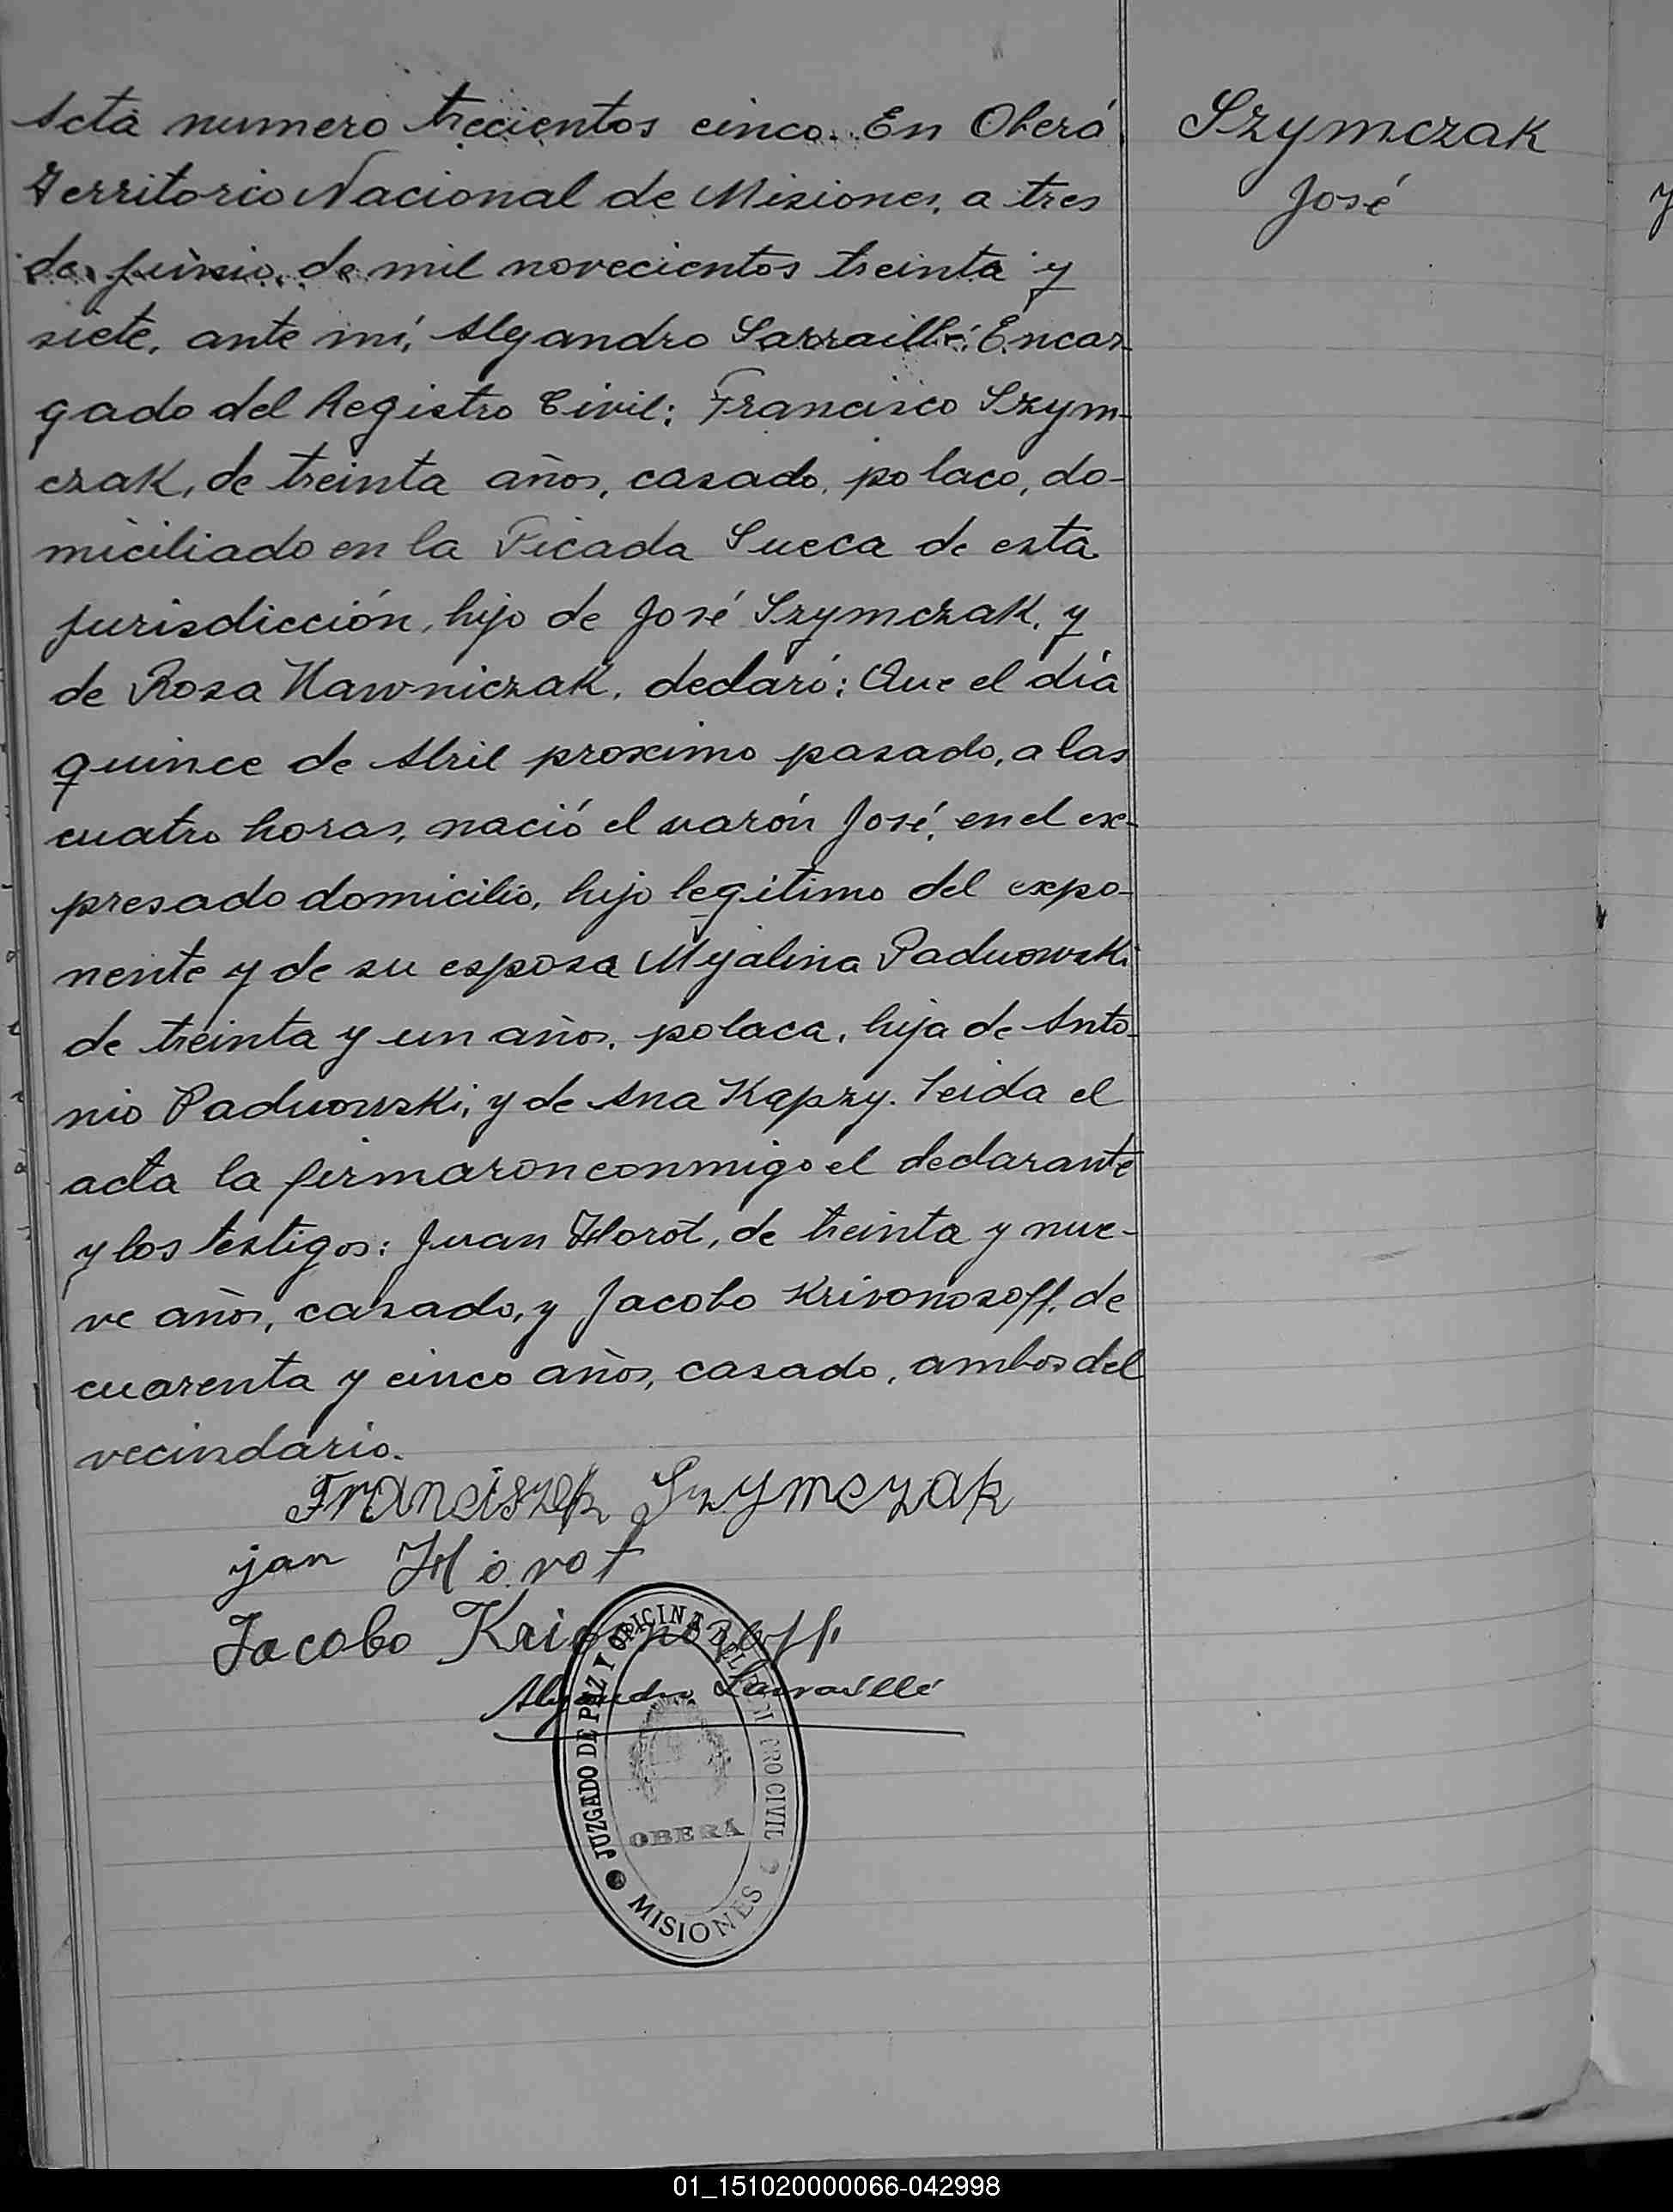 Acta numero trecientos cinco. En Oberá,
Territorio Nacional de Misiones, a tres
de junio, de mil novecientos treinta y
siete, ante mí, Alejandro Sarraillé, Encar-
gado del Registro Civil: Francisco Szym-
czak, de treinta años, casado, polaco, do-
miciliado en la Picada Sueca de esta
jurisdicción, hijo de José Szymczak, y
de Rosa Nawniczak, declaró: Que el día
quince de Abril proximo pasado, a las
cuatro horas, nació el varón José, en el ex-
presado domicilio, hijo legítimo del expo-
nente y de su esposa Myalina Paduowski
de treinta y un años, polaca, hija de Anto-
nio Paduowski, y de Ana Kapzy. Leida el
acta la firmaron conmigo el declarante
y los testigos: Juan Horot, de treinta y nue-
ve años, casado, y Jacobo Krivonosoff, de
cuarenta y cinco años, casado, ambos del
vecindario.
Franciszek Szymczak
jan Horot
Jacobo Krivonosoff
Alejandro Sarraillé
JUZGADO DE PAZ Y OFICINA DEL REGISTRO CIVIL
OBERA
MISIONES
Szymczak
José
y
01_151020000066-042998